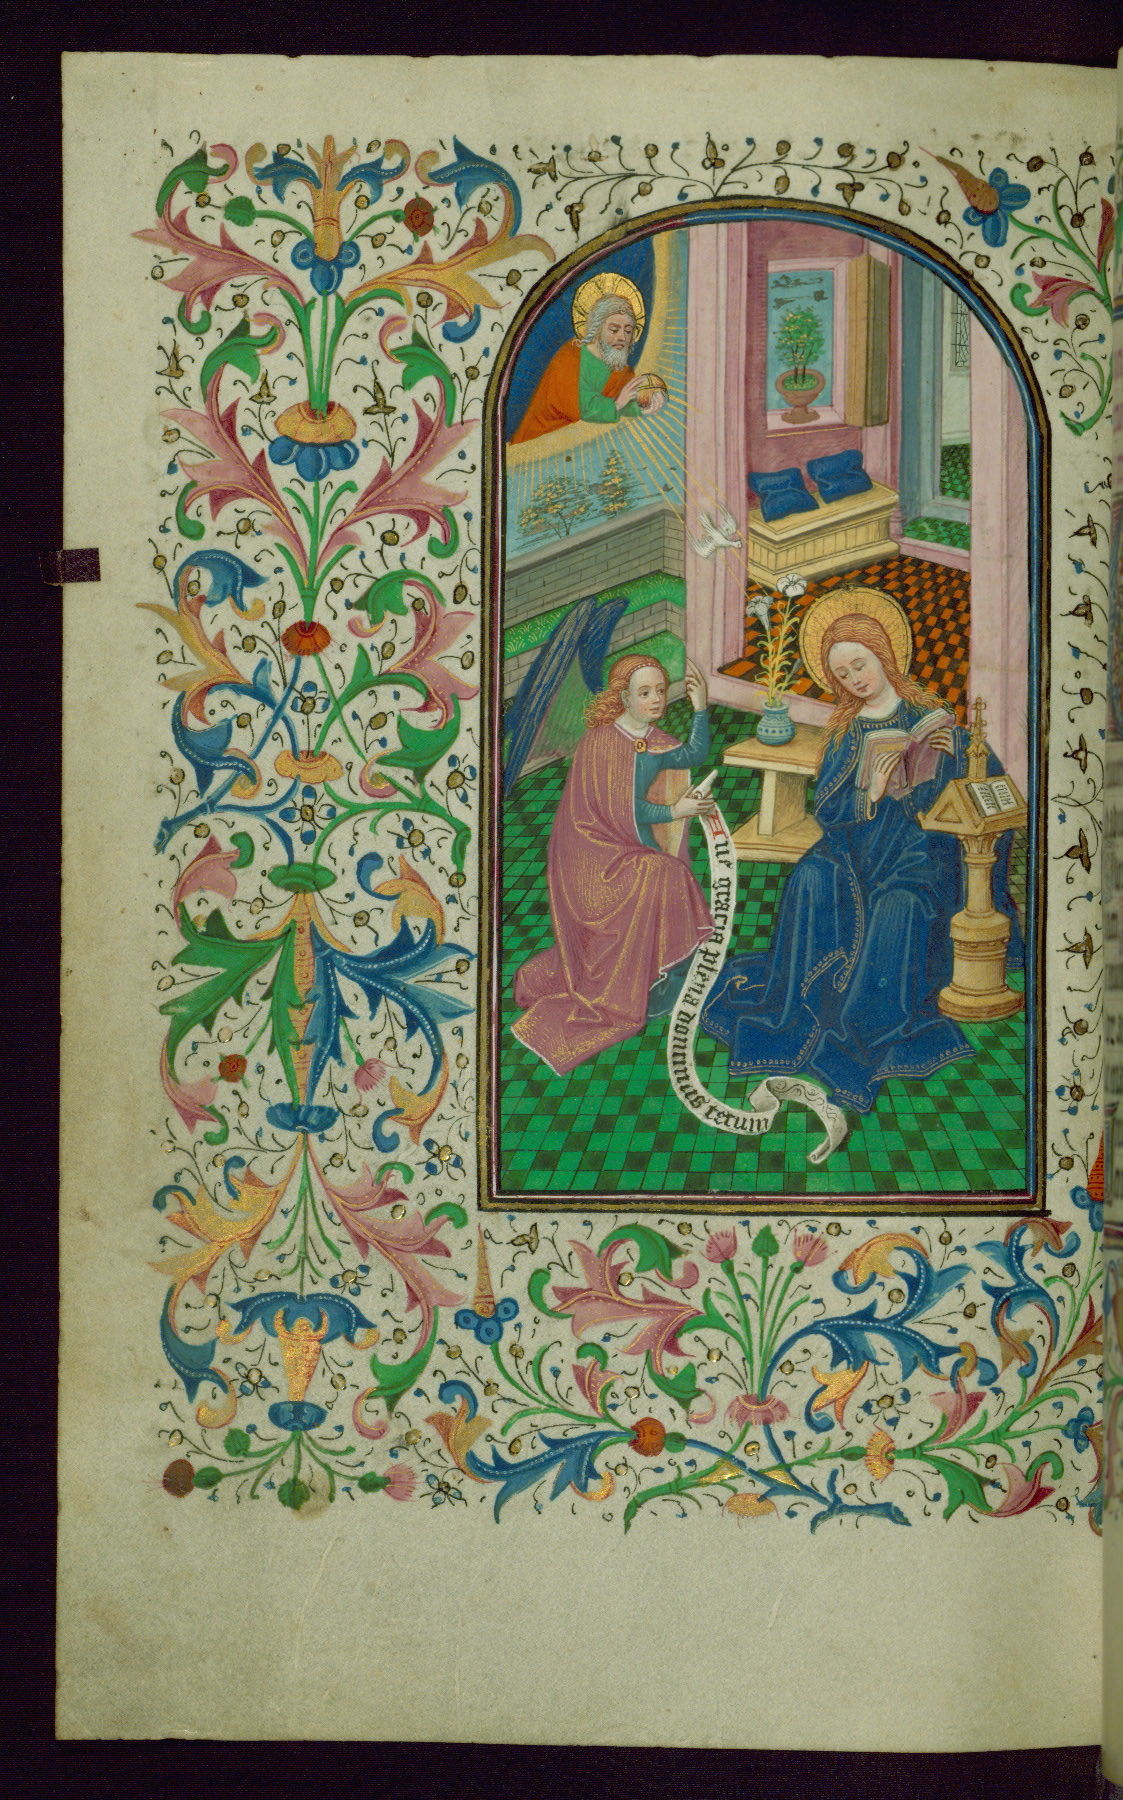 Aue gracia plena dominus tecum